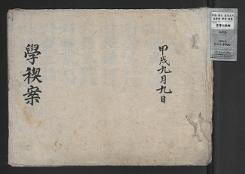 甲戌九月九日
學稧案